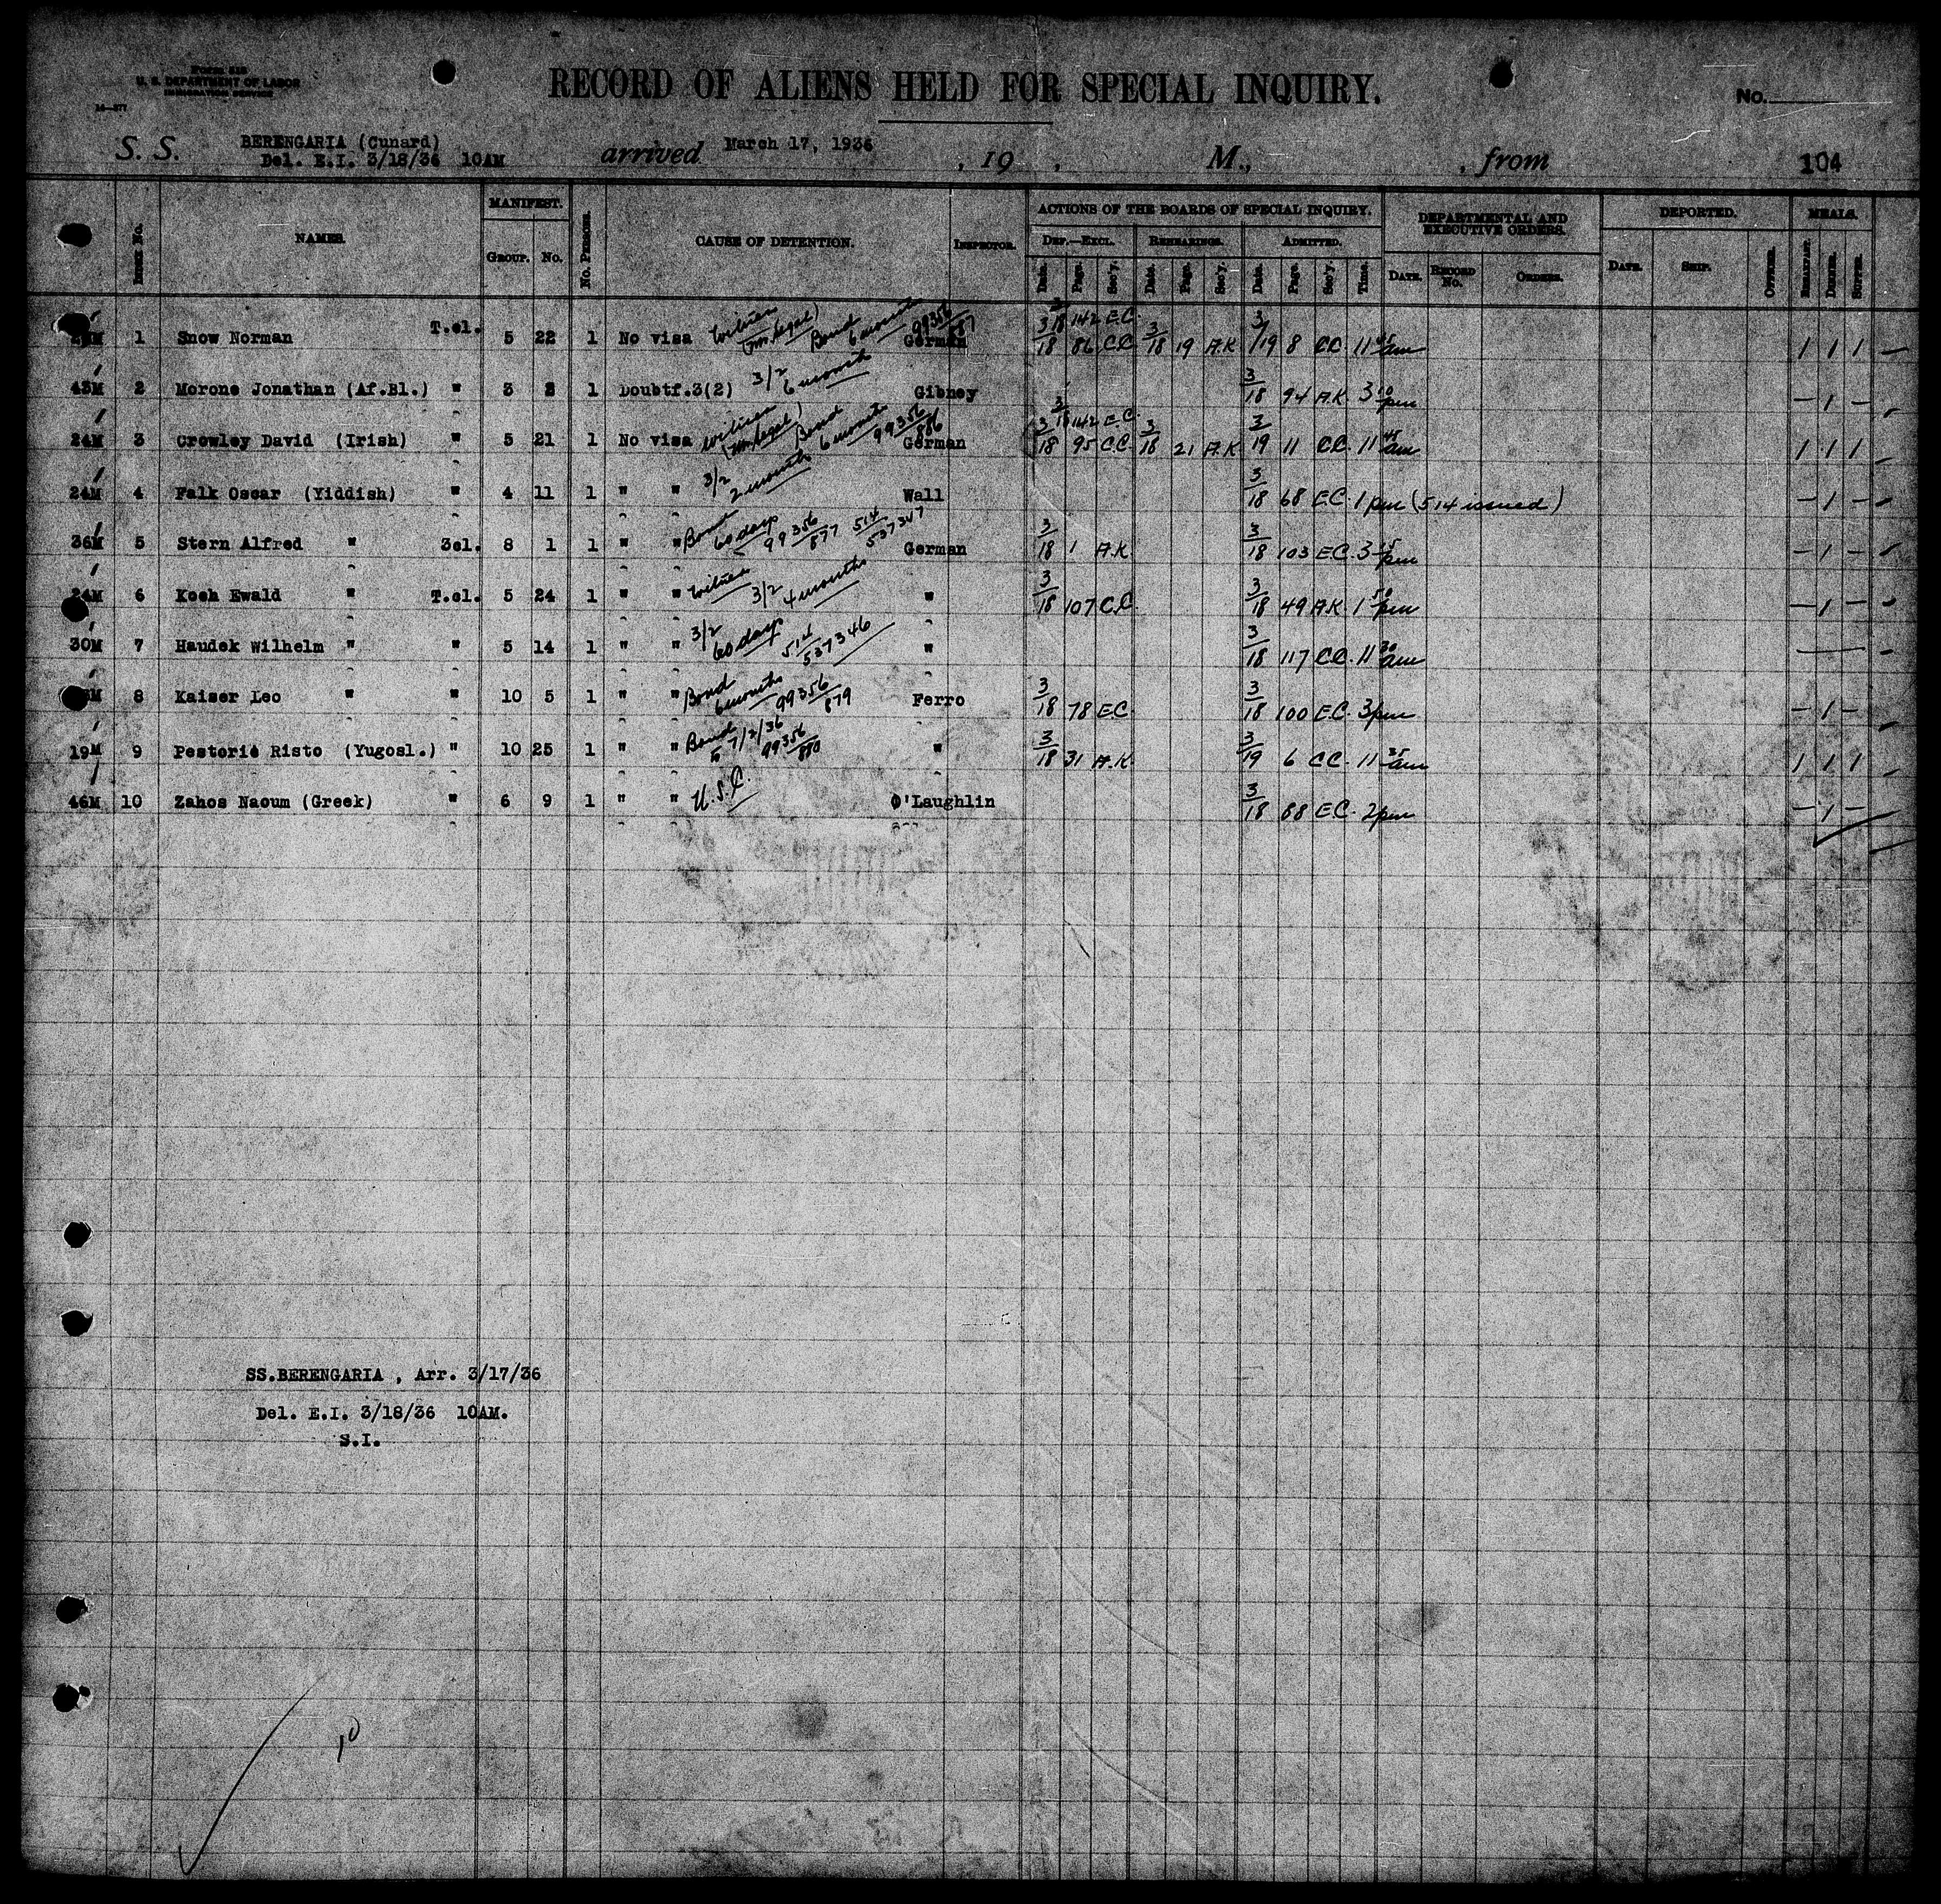 Form 518
U. S. DEPARTMENT OF LABOR
IMMIGRATION SERVICE
14—277
RECORD OF ALIENS HELD FOR SPECIAL INQUIRY.
No.
S. S. BERENGARIA (Cunard) arrived March 17, 1936, 19 , M., , from 104
Del. E.I. 3/18/36 10AM
MANIFEST. ACTIONS OF THE BOARDS OF SPECIAL INQUIRY. DEPARTMENTAL AND EXECUTIVE ORDERS. DEPORTED. MEALS.
NAMES. Group. No. No. Persons. CAUSE OF DETENTION. Inspector. Def.—Excl. Rehearings. Admitted.
Date. Page. Sec'y. Date. Page. Sec'y. Date. Page. Sec'y. Time. Date. Record No. Orders. Date. Ship. Officer. Breakfast. Dinner. Supper.
1 Snow Norman T.cl. 5 22 1 No visa Bond 6 months 99356/887 German 3/18 142 E.C. 3/18 86 C.C. 3/18 19 A.K. 3/19 8 C.C. 11 45 am 1 1 1 —
43M 2 Morone Jonathan (Af.Bl.) " 3 2 1 Doubtf.3(2) 3/2 6 months Gibney 3/18 94 A.K. 3 10 pm — 1 —
24M 3 Crowley David (Irish) " 5 21 1 No visa Bond 6 months 99356/886 German 3/18 142 E.C. 3/18 95 C.C. 3/18 21 A.K. 3/19 11 C.C. 11 45 am 1 1 1 —
24M 4 Falk Oscar (Yiddish) " 4 11 1 " " 3/2 2 months Wall 3/18 68 E.C. 1 pm (514 issued) — 1 —
36M 5 Stern Alfred " 3cl. 8 1 1 " " Bond 60 days 99356/877 514/537347 German 3/18 1 A.K. 3/18 103 E.C. 3 15 pm — 1 —
24M 6 Koch Ewald " T.cl. 5 24 1 " " 3/2 4 months " 3/18 107 C.C. 3/18 49 A.K. 1 50 pm — 1 —
30M 7 Haudek Wilhelm " " 5 14 1 " " 3/2 60 days 514/537346 " 3/18 117 C.C. 11 30 am —
8 Kaiser Leo " " 10 5 1 " " Bond 6 months 99356/879 Ferro 3/18 78 E.C. 3/18 100 E.C. 3 pm — 1 —
19M 9 Pestorié Risto (Yugosl.) " 10 25 1 " " Bond 7/2/36 99356/880 " 3/18 31 A.K. 3/19 6 C.C. 11 35 am 1 1 1
46M 10 Zahos Naoum (Greek) " 6 9 1 " " U.S.C. O'Laughlin 3/18 88 E.C. 2 pm — 1 —
SS.BERENGARIA , Arr. 3/17/36
Del. E.I. 3/18/36 10AM.
S.I.
10